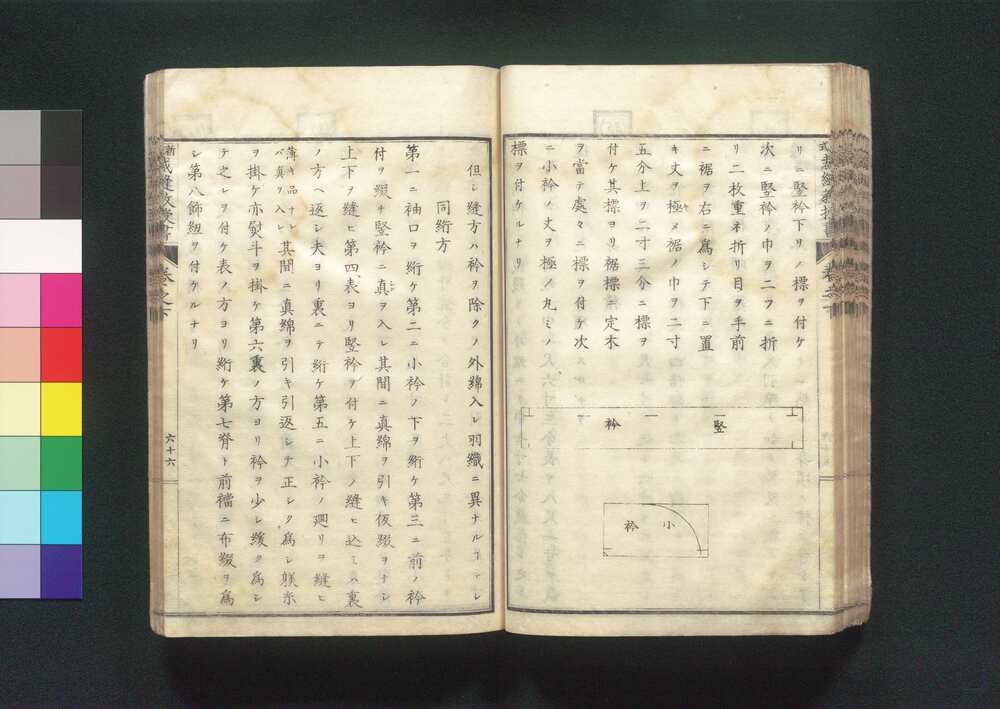 リニ竪衿下リノ標ヲ付ケ
次ニ竪衿ノ巾ヲ二フニ折
リ二枚重ネ折リ目ヲ手前
ニ裾ヲ右ニ為シテ下ニ置
キ丈ヲ極メ裾ノ巾ヲ二寸
五分上ヲ二寸三分ニ標ヲ
付ケ其標ヨリ裾標ニ定木
ヲ當テ處々ニ標ヲ付ケ次
ニ小衿ノ丈ヲ極メ丸ミノ
標ヲ付ケルナリ
竪
衿
小
衿
但シ縫方ハ衿ヲ除クノ外綿入レ羽織ニ異ナル
同絎方
第一ニ袖口ヲ絎ケ第二ニ小衿ノ下ヲ絎ケ第三ニ前ノ衿
付ヲ綴チ竪衿ニ真ヲ入レ其間ニ真綿ヲ引キ仮綴ヲナシ
上下ヲ縫ヒ第四表ヨリ竪衿ヲ付ケ上下ノ縫ヒ込ミハ裏
ノ方ヘ返シ夫ヨリ裏ニテ絎ケ第五ニ小衿ノ廻リヲ縫ヒ
薄キ品ナレバ真ヲ入レ其間ニ真綿ヲ引キ引返シテ正シク為シ躾糸
ヲ掛ケ亦熨斗ヲ掛ケ第六裏ノ方ヨリ衿ヲ少シ緩ク為シ
テ之レヲ付ケ表ノ方ヨリ絎ケ第七脊ト前襠ニ布綴ヲ為
シ第八飾紐ヲ付ケルナリ
裁縫教授書
卷之下
六十六